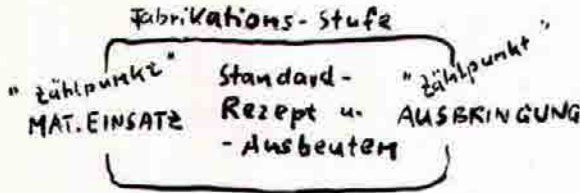 Fabrikations-Stufe
"Zählpunkt"
MAT. EINSATZ
Standard-
Rezept u.
-Ausbeuten
"Zählpunkt"
AUSBRINGUNG